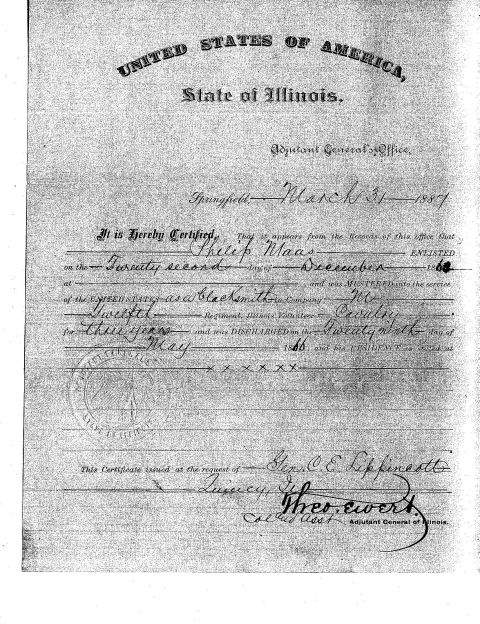 UNITED STATES OF AMERICA,
State of Illinois.
Adjutant General's Office,
Springfield, March 31 1887
It is Hereby Certified, That it appears from the Records of this office that
Philip Maas ENLISTED
on the Twenty second day of December 1863
at and was MUSTERED into the service
of the UNITED STATES as a Blacksmith in Company M
Twelfth Regiment, Illinois Volunteer Cavalry
for three years and was DISCHARGED on the Twenty ninth day of
May 1866 and his RESIDENCE
x x x x x x
This Certificate issued at the request of Gen. C. E. Lippincott
Quincy, Ill
Theo. Ewert.
Col and Asst Adjutant General of Illinois.